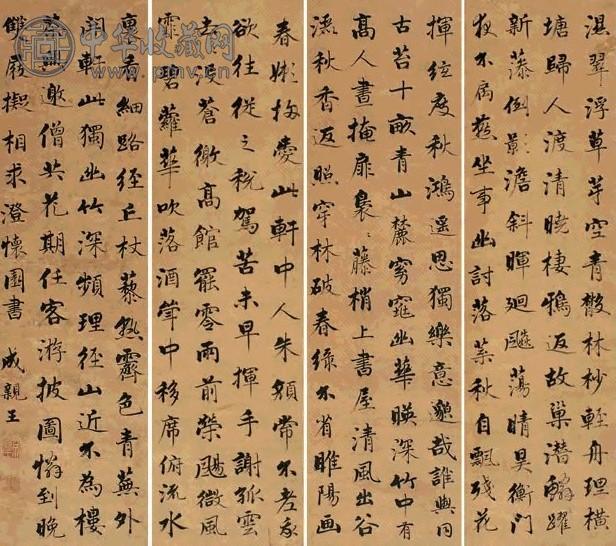 濕翠浮草芽空青散林杪輕舟理橫
塘歸人渡清曉棲鴉返故巢潛鱗躍
新藻倒影澹斜暉迴飈蕩晴昊衡門
夜不扃燕坐事幽討落葉秋自飄殘花
揮絃度秋鴻遥思獨樂意邈哉誰與同
古苔十畝青山麓窈窕幽華暎深竹中有
高人晝掩扉裊〻藤梢上書屋清風出谷
秋香返照穿林破春緑不省睢陽画
春此軒中人朱顏常不老我
欲往從之税駕苦未早揮手謝孤雲
去蒼高館罷零雨前榮颺微風
蘿華吹落酒聲中移席俯流水
香細路經丘杖藜霽色青蕪外
軒此獨幽竹深頻理徑山近不為樓
邀僧共花期任客游披圖慚到晚
屐擬相求澄懷園書 成親王
中华收藏网